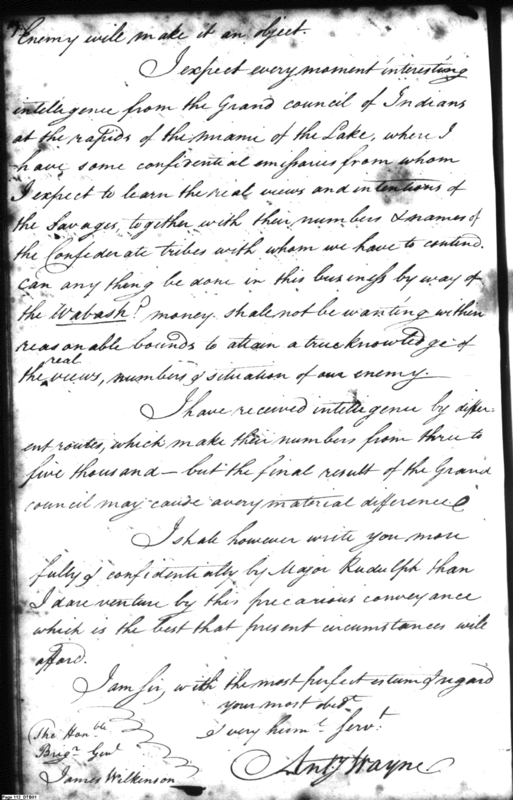 Enemy will make it an object.
I expect every moment interesting
intelligence from the Grand council of Indians
at the rapids of the Miami of the Lake, where I
have some confidential emissaries from whom
I expect to learn the real views and intentions of
the Savages, together with their numbers & names of
the Confederate tribes with whom we have to contend.
can any thing be done in this business by way of
the Wabash? money shall not be wanting within
reasonable bounds to attain a true knowledge of
real
the views, numbers & situation of our enemy.—
I have received intelligence by differ-
ent routes, which make their numbers from three to
five thousand— but the final result of the Grand
council may cause a very material difference
I shall however write you more
fully & confidentially by Major Rudulph than
I dare venture by this precarious conveyance
which is the best that present circumstances will
afford.
I am Sir, with the most perfect esteem & regard
your most obdt.
& very humle. Servt.
The Honble
Brigr. Genl.
James Wilkinson
Anty Wayne
Page 112